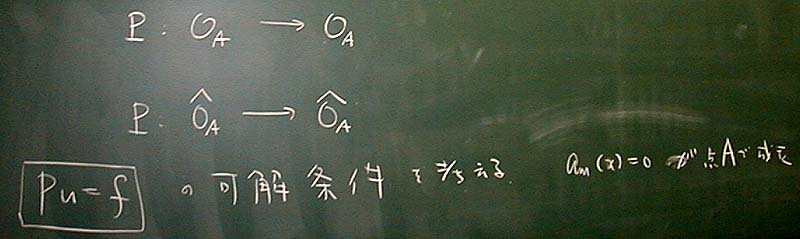 P : O_A → O_A
P : Ô_A → Ô_A
Pu = f の可解条件を考える a_m(x)=0 が点Aで成立